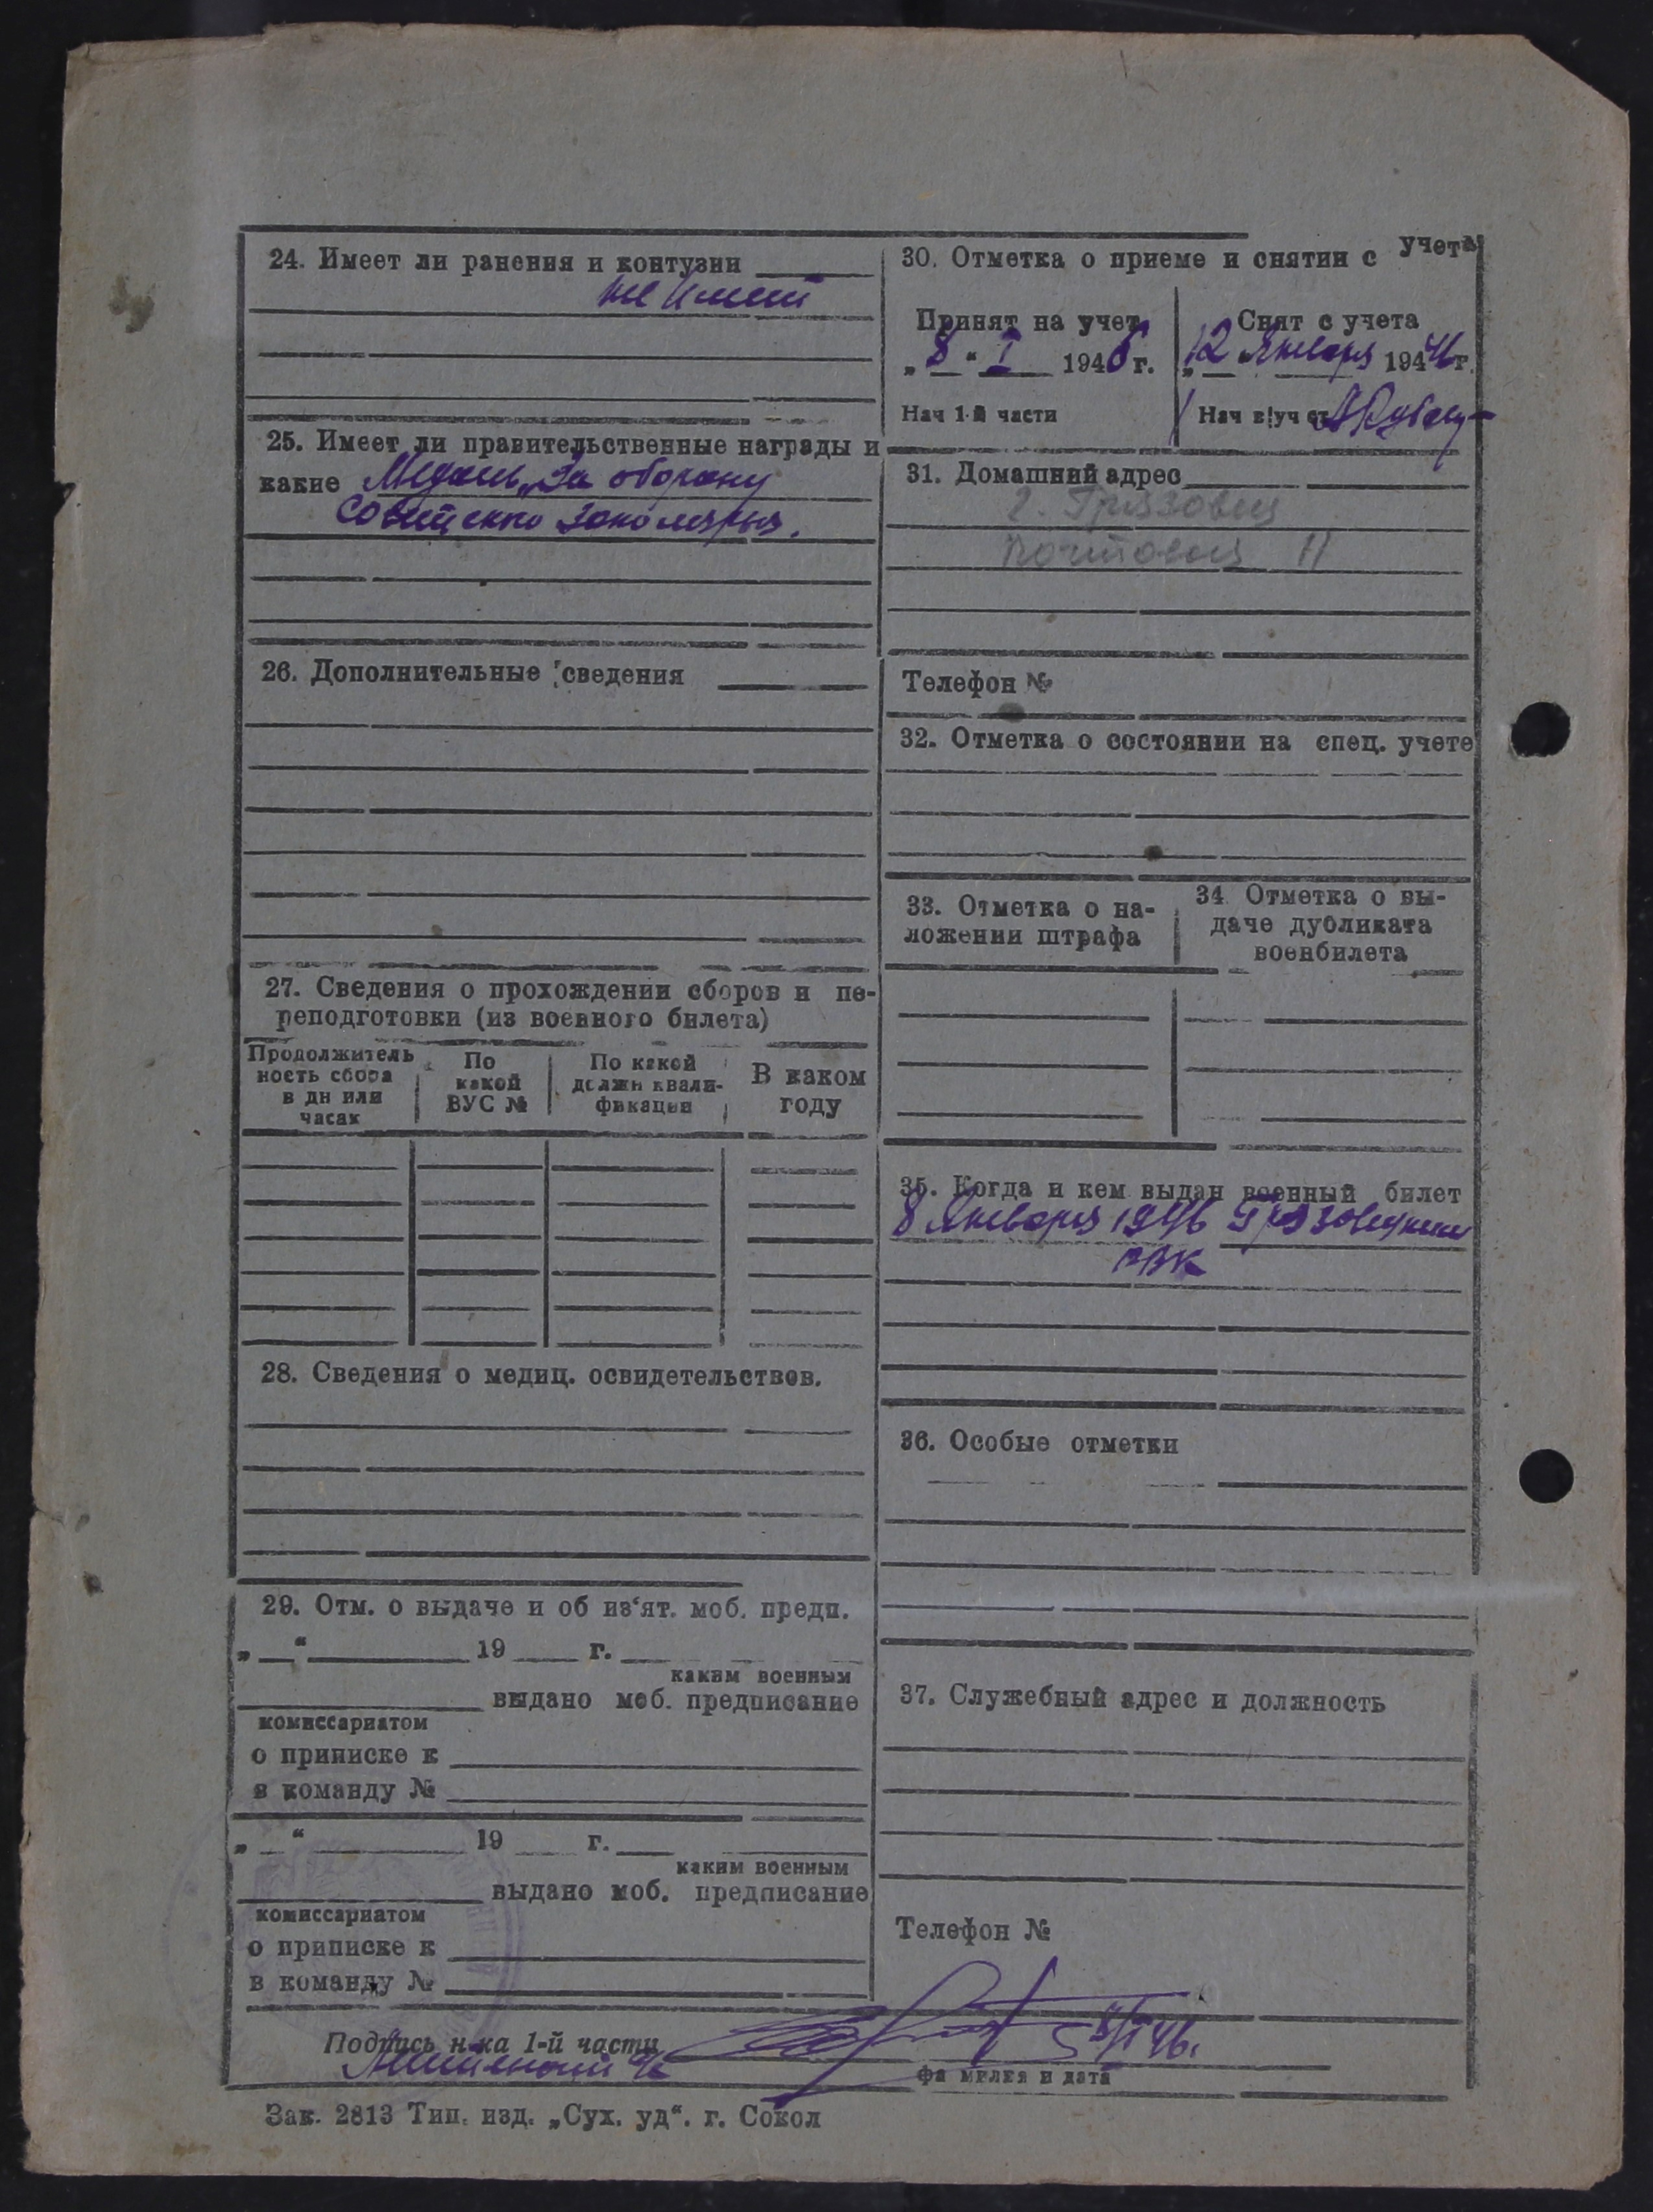 24. Имеет ли ранения и контузии
не имеет
25. Имеет ли правительственные награды и
какие Медаль „За оборону
Советского Заполярья.
26. Дополнительные сведения
27. Сведения о прохождении сборов и пе-
реподготовки (из военного билета)
Продолжитель
ность сбора
в дн или
часах
По
какой
ВУС №
По какой
должн квали-
фикации
В каком
году
28. Сведения о медиц. освидетельствов.
29. Отм. о выдаче и об из‘ят. моб. предп.
„ “ 19 г.
каким военным
выдано моб. предписание
комиссариатом
о приписке к
в команду №
„ “ 19 г.
каким военным
выдано моб. предписание
комиссариатом
о приписке к
в команду №
30. Отметка о приеме и снятии с учета
Принят на учет
„8“ I 1946 г.
Нач 1-й части
Снят с учета
„12 Января 1946 г.
Нач в|уч ст
31. Домашний адрес
г. Грязовец
Почтовая 11
Телефон №
32. Отметка о состоянии на спец. учете
33. Отметка о на-
ложении штрафа
34. Отметка о вы-
даче дубликата
военбилета
35. Когда и кем выдан военный билет
8 Января 1946 Грязовецким
РВК
36. Особые отметки
37. Служебный адрес и должность
Телефон №
Подпись н-ка 1-й части
фамилия и дата
Зак. 2813 Тип. изд. „Сух. уд“. г. Сокол